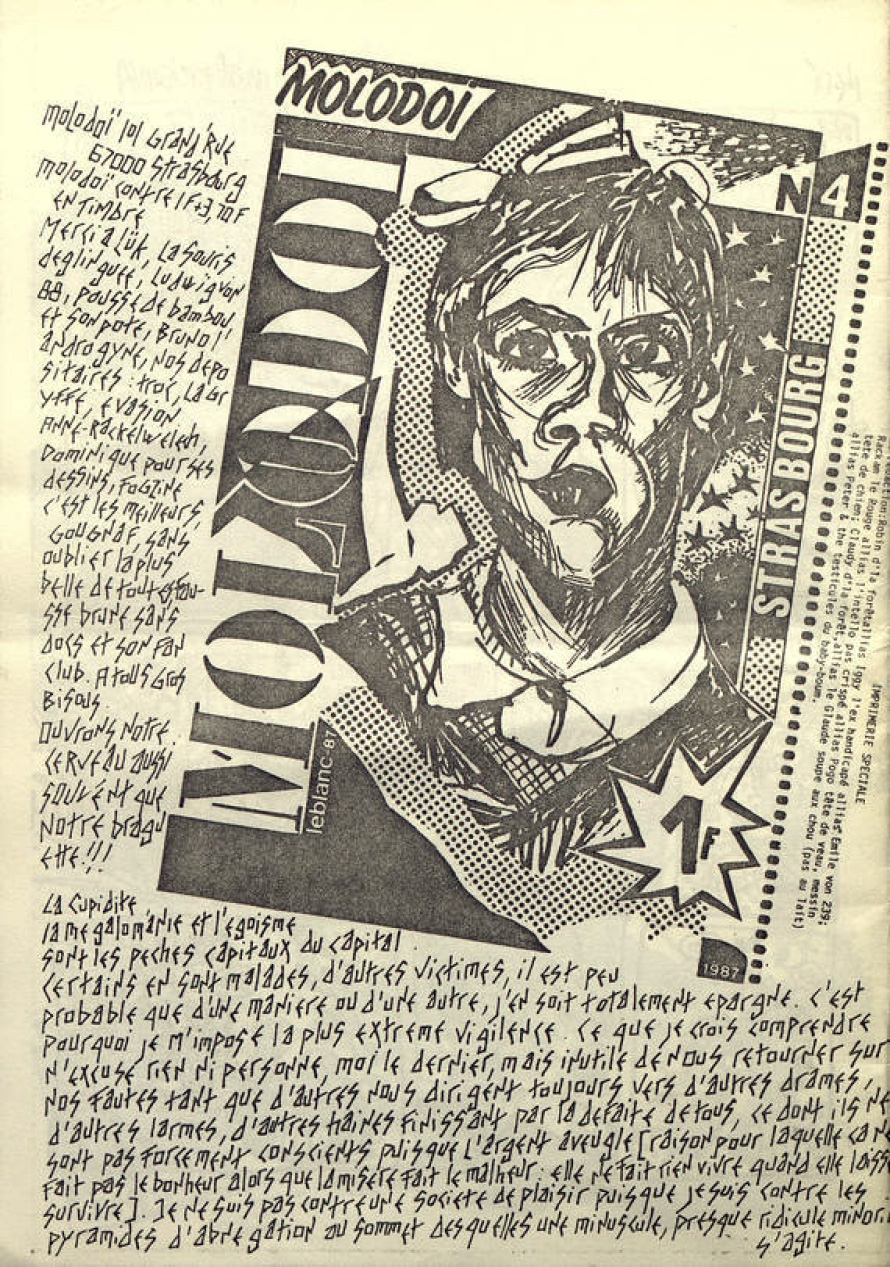 MOLODOÏ
N 4
MOLODOI
STRASBOURG
leblanc-87
1F
1987
MOLODOÏ 101 GRAND'RUE
67000 STRASBOURG
MOLODOÏ CONTRE 1F+3,70F
EN TIMBRE
MERCI A LÜK, LA SOURIS
DEGLINGUEE, LUDWIG VON
88, POUSSE DE BAMBOU,
ET SON POTE, BRUNO L'
ANDROGYNE, NOS DEPO
SITAIRES : TROC, LA GR
YFFE, EVASION
ANNE-RACKELWELCH,
DOMINIQUE POUR SES
DESSINS, FUGZINE
C'EST LES MEILLEURS,
GOUGNAF, SANS
OUBLIER LA PLUS
BELLE DE TOUTES
SSE BRUNE SANS
DOCS ET SON FAN
CLUB. A TOUS GROS
BISOUS.
OUVRONS NOTRE
CERVEAU AUSSI
SOUVENT QUE
NOTRE BRAGU
ETTE !!!
IMPRIMERIE SPECIALE
Robin d'la forêt allias Iggy l'ex handicapé allias Emile von 239;
Rackam le Rouge allias l'intello pas crispé allias Pogo tête de veau, massin
tête de chien; Claudy d'la forêt allias le Glaude soupe aux chou (pas au lait)
allias Peter & the testicules du baby-boum.
LA CUPIDITE
LA MEGALOMANIE ET L'EGOISME
SONT LES PECHES CAPITAUX DU CAPITAL.
CERTAINS EN SONT MALADES, D'AUTRES VICTIMES, IL EST PEU
PROBABLE QUE D'UNE MANIERE OU D'UNE AUTRE, J'EN SOIT TOTALEMENT EPARGNE. C'EST
POURQUOI JE M'IMPOSE LA PLUS EXTREME VIGILENCE. CE QUE JE CROIS COMPRENDRE
N'EXCUSE RIEN NI PERSONNE, MOI LE DERNIER, MAIS INUTILE DE NOUS RETOURNER SUR
NOS FAUTES TANT QUE D'AUTRES NOUS DIRIGENT TOUJOURS VERS D'AUTRES DRAMES,
D'AUTRES LARMES, D'AUTRES HAINES FINISSANT PAR LA DEFAITE DE TOUS, CE DONT ILS NE
SONT PAS FORCEMENT CONSCIENTS PUISQUE L'ARGENT AVEUGLE [RAISON POUR LAQUELLE CA NE
FAIT PAS LE BONHEUR ALORS QUE LA MISERE FAIT LE MALHEUR : ELLE NE FAIT RIEN VIVRE QUAND ELLE LAISSE
SURVIVRE]. JE NE SUIS PAS CONTRE UNE SOCIETE DE PLAISIR PUISQUE JE SUIS CONTRE LES
PYRAMIDES D'ABNEGATION AU SOMMET DESQUELLES UNE MINUSCULE, PRESQUE RIDICULE MINORI
S'AGITE.